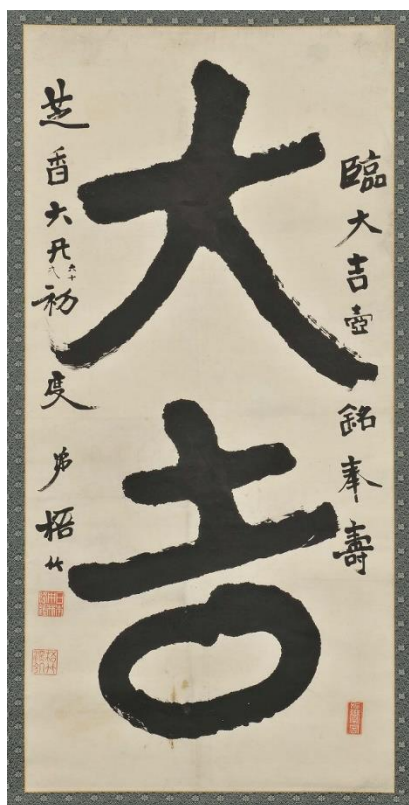 臨大吉壺銘奉壽
大吉
芝香大兄六十初度 弟梧竹